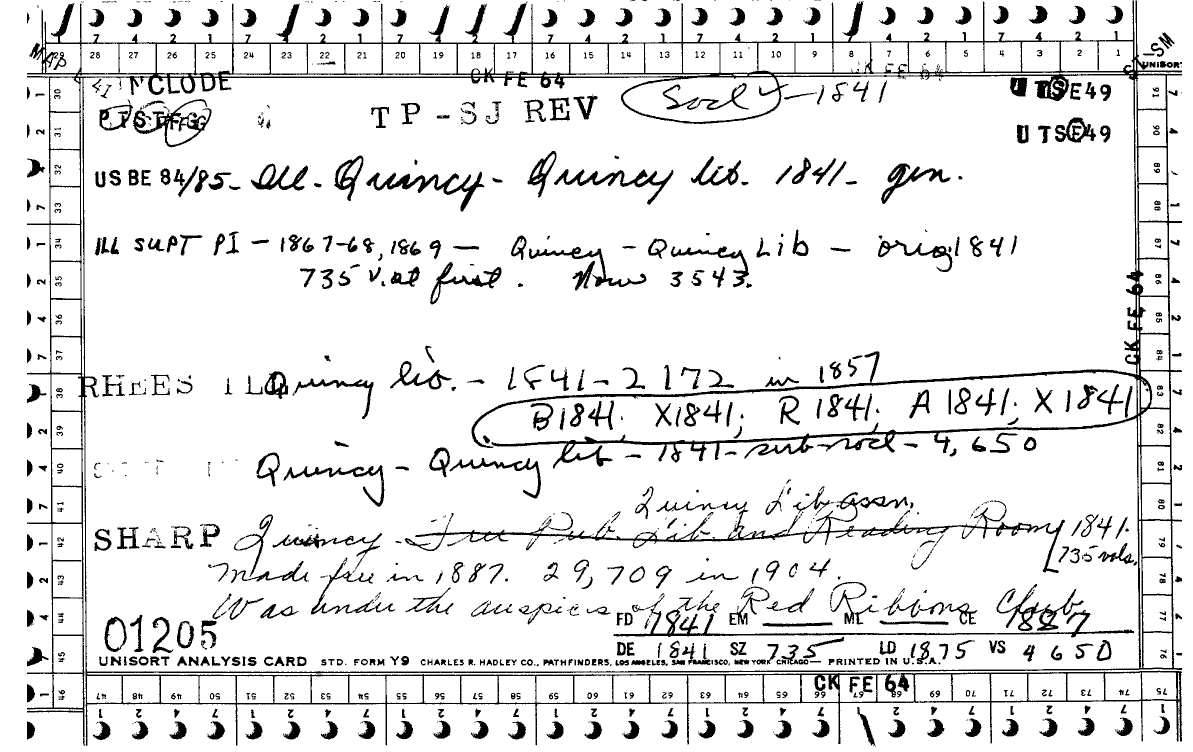 7 4 2 1 7 4 2 1 7 4 2 1 7 4 2 1 7 4 2 1 7 4 2 1 7 4 2 1
29 28 27 26 25 24 23 22 21 20 19 18 17 16 15 14 13 12 11 10 9 8 7 6 5 4 3 2 1
SM
UNISORT
INCLODE CK FE 64 CK FE 64
TP-SJ REV Socl Y-1841 UTSE49
PTSTFGG
UTSE49
US BE 84/85- Ill- Quincy- Quincy lib. 1841- gen.
ILL SUPT PI - 1867-68, 1869 - Quincy - Quincy Lib - orig 1841
735 v. at first. Now 3543.
CK FE 64
RHEES ILL Quincy lib. - 1841-2172 in 1857
B1841; X1841; R 1841; A 1841; X 1841
Quincy - Quincy lib - 1841- sub-socl - 4,650
Quincy Lib assn.
SHARP Quincy - Free Pub. Lib. and Reading Room 1841.
735 vols.
Made free in 1887. 29,709 in 1904.
Was under the auspices of the Red Ribbons Club.
FD 1841 EM ML CE 1887
01205
DE 1841 SZ 735 LD 1875 VS 4650
UNISORT ANALYSIS CARD STD. FORM Y9 CHARLES R. HADLEY CO., PATHFINDERS, LOS ANGELES, SAN FRANCISCO, NEW YORK, CHICAGO— PRINTED IN U.S.A.
CK FE 64
46 47 48 49 50 51 52 53 54 55 56 57 58 59 60 61 62 63 64 65 66 67 68 69 70 71 72 73 74 75